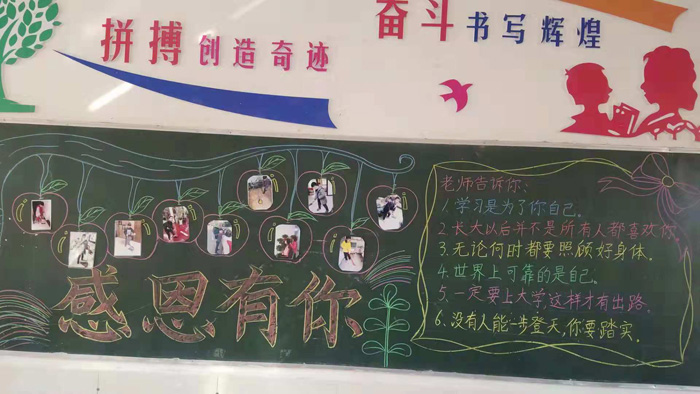 拼搏创造奇迹
奋斗书写辉煌
感恩有你
老师告诉你:
1.学习是为了你自己。
2.长大以后并不是所有人都喜欢你
3.无论何时都要照顾好身体。
4.世界上可靠的是自己。
5.一定要上大学,这样才有出路。
6.没有人能一步登天,你要踏实。